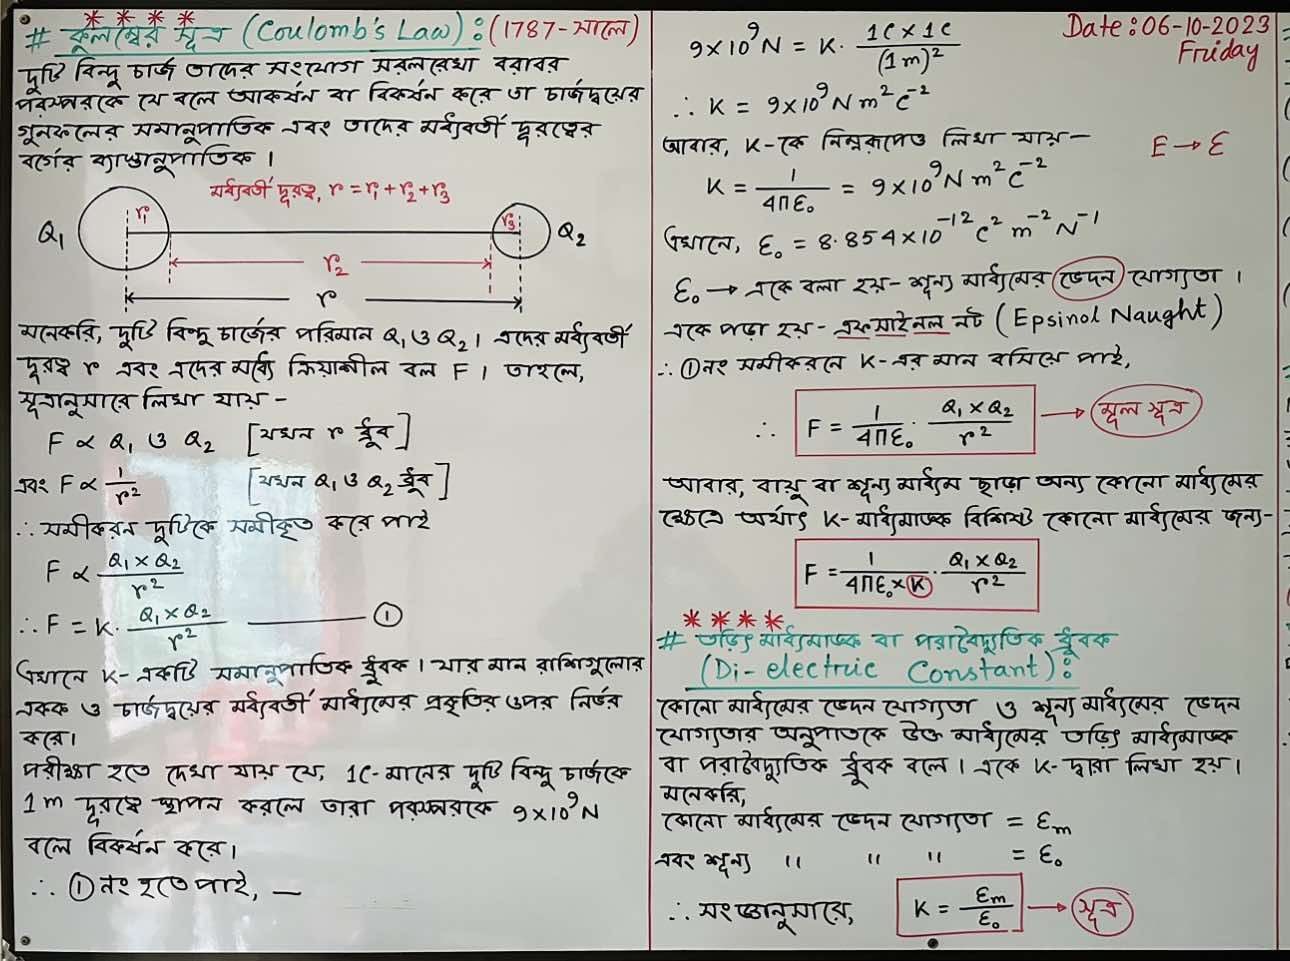 # কুলম্বের সূত্র (Coulomb's Law) : (1787- সালে)
দুটি বিন্দু চার্জ তাদের সংযোগ সরলরেখা বরাবর
পরস্পরকে যে বলে আকর্ষন বা বিকর্ষন করে তা চার্জদ্বয়ের
গুনফলের সমানুপাতিক এবং তাদের মর্ধ্যবর্তী দূরত্বের
বর্গের ব্যাস্তানুপাতিক।
মর্ধ্যবর্তী দূরত্ব, r = r₁ + r₂ + r₃
Q₁ r₁ r₃ Q₂
r₂
r
মনেকরি, দুটি বিন্দু চার্জের পরিমান Q₁ ও Q₂। এদের মর্ধ্যবর্তী
দূরত্ব r এবং এদের মর্ধ্যে ক্রিয়াশীল বল F। তাহলে,
সূত্রানুসারে লিখা যায় -
F ∝ Q₁ ও Q₂ [যখন r ধ্রুব]
এবং F ∝ 1/r² [যখন Q₁ ও Q₂ ধ্রুব]
∴ সমীকরন দুটিকে সমীকৃত করে পাই
F ∝ (Q₁ × Q₂)/r²
∴ F = K. (Q₁ × Q₂)/r² ——— ①
এখানে K- একটি সমানুপাতিক ধ্রুবক। যার মান রাশিগুলোর
একক ও চার্জদ্বয়ের মর্ধ্যবর্তী মার্ধ্যমের প্রকৃতির ওপর নির্ভর
করে।
পরীক্ষা হতে দেখা যায় যে, 1C- মানের দুটি বিন্দু চার্জকে
1m দূরত্বে স্থাপন করলে তারা পরস্পরকে 9×10⁹N
বলে বিকর্ষন করে।
∴ ① নং হতে পাই, —
Date: 06-10-2023
Friday
9×10⁹N = K. (1C × 1C)/(1m)²
∴ K = 9×10⁹ N m² C⁻²
আবার, K-কে নিম্নরূপেও লিখা যায়—
E → Ɛ
K = 1/(4πƐ₀) = 9×10⁹ N m² C⁻²
এখানে, Ɛ₀ = 8.854×10⁻¹² C² m⁻² N⁻¹
Ɛ₀ → একে বলা হয়- শূন্য মার্ধ্যমের ভেদন যোগ্যতা।
একে পড়া হয়- এফসাইনল নট (Epsinol Naught)
∴ ① নং সমীকরনে K-এর মান বসিয়ে পাই,
∴ F = 1/(4πƐ₀) . (Q₁ × Q₂)/r² → মূল সূত্র
আবার, বায়ু বা শূন্য মার্ধ্যম ছাড়া অন্য কোনো মার্ধ্যমের
ক্ষেত্রে অর্থাৎ K- মার্ধ্যমাঙ্ক বিশিষ্ট কোনো মার্ধ্যমের জন্য-
F = 1/(4πƐ₀ × K) . (Q₁ × Q₂)/r²
# তড়িৎ মার্ধ্যমাঙ্ক বা পরাবৈদ্যুতিক ধ্রুবক
(Di-electric Constant) :
কোনো মার্ধ্যমের ভেদন যোগ্যতা ও শূন্য মার্ধ্যমের ভেদন
যোগ্যতার অনুপাতকে উক্ত মার্ধ্যমের তড়িৎ মার্ধ্যমাঙ্ক
বা পরাবৈদ্যুতিক ধ্রুবক বলে। একে K- দ্বারা লিখা হয়।
মনেকরি,
কোনো মার্ধ্যমের ভেদন যোগ্যতা = Ɛm
এবং শূন্য " " " = Ɛ₀
∴ সংজ্ঞানুসারে, K = Ɛm/Ɛ₀ → সূত্র